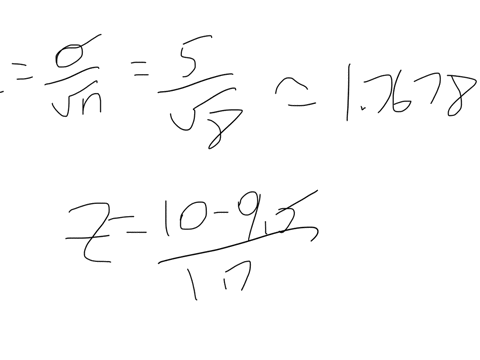 = σ/√n = 5/√8 ≈ 1.7678
Z = 10 - 9.2/1.7